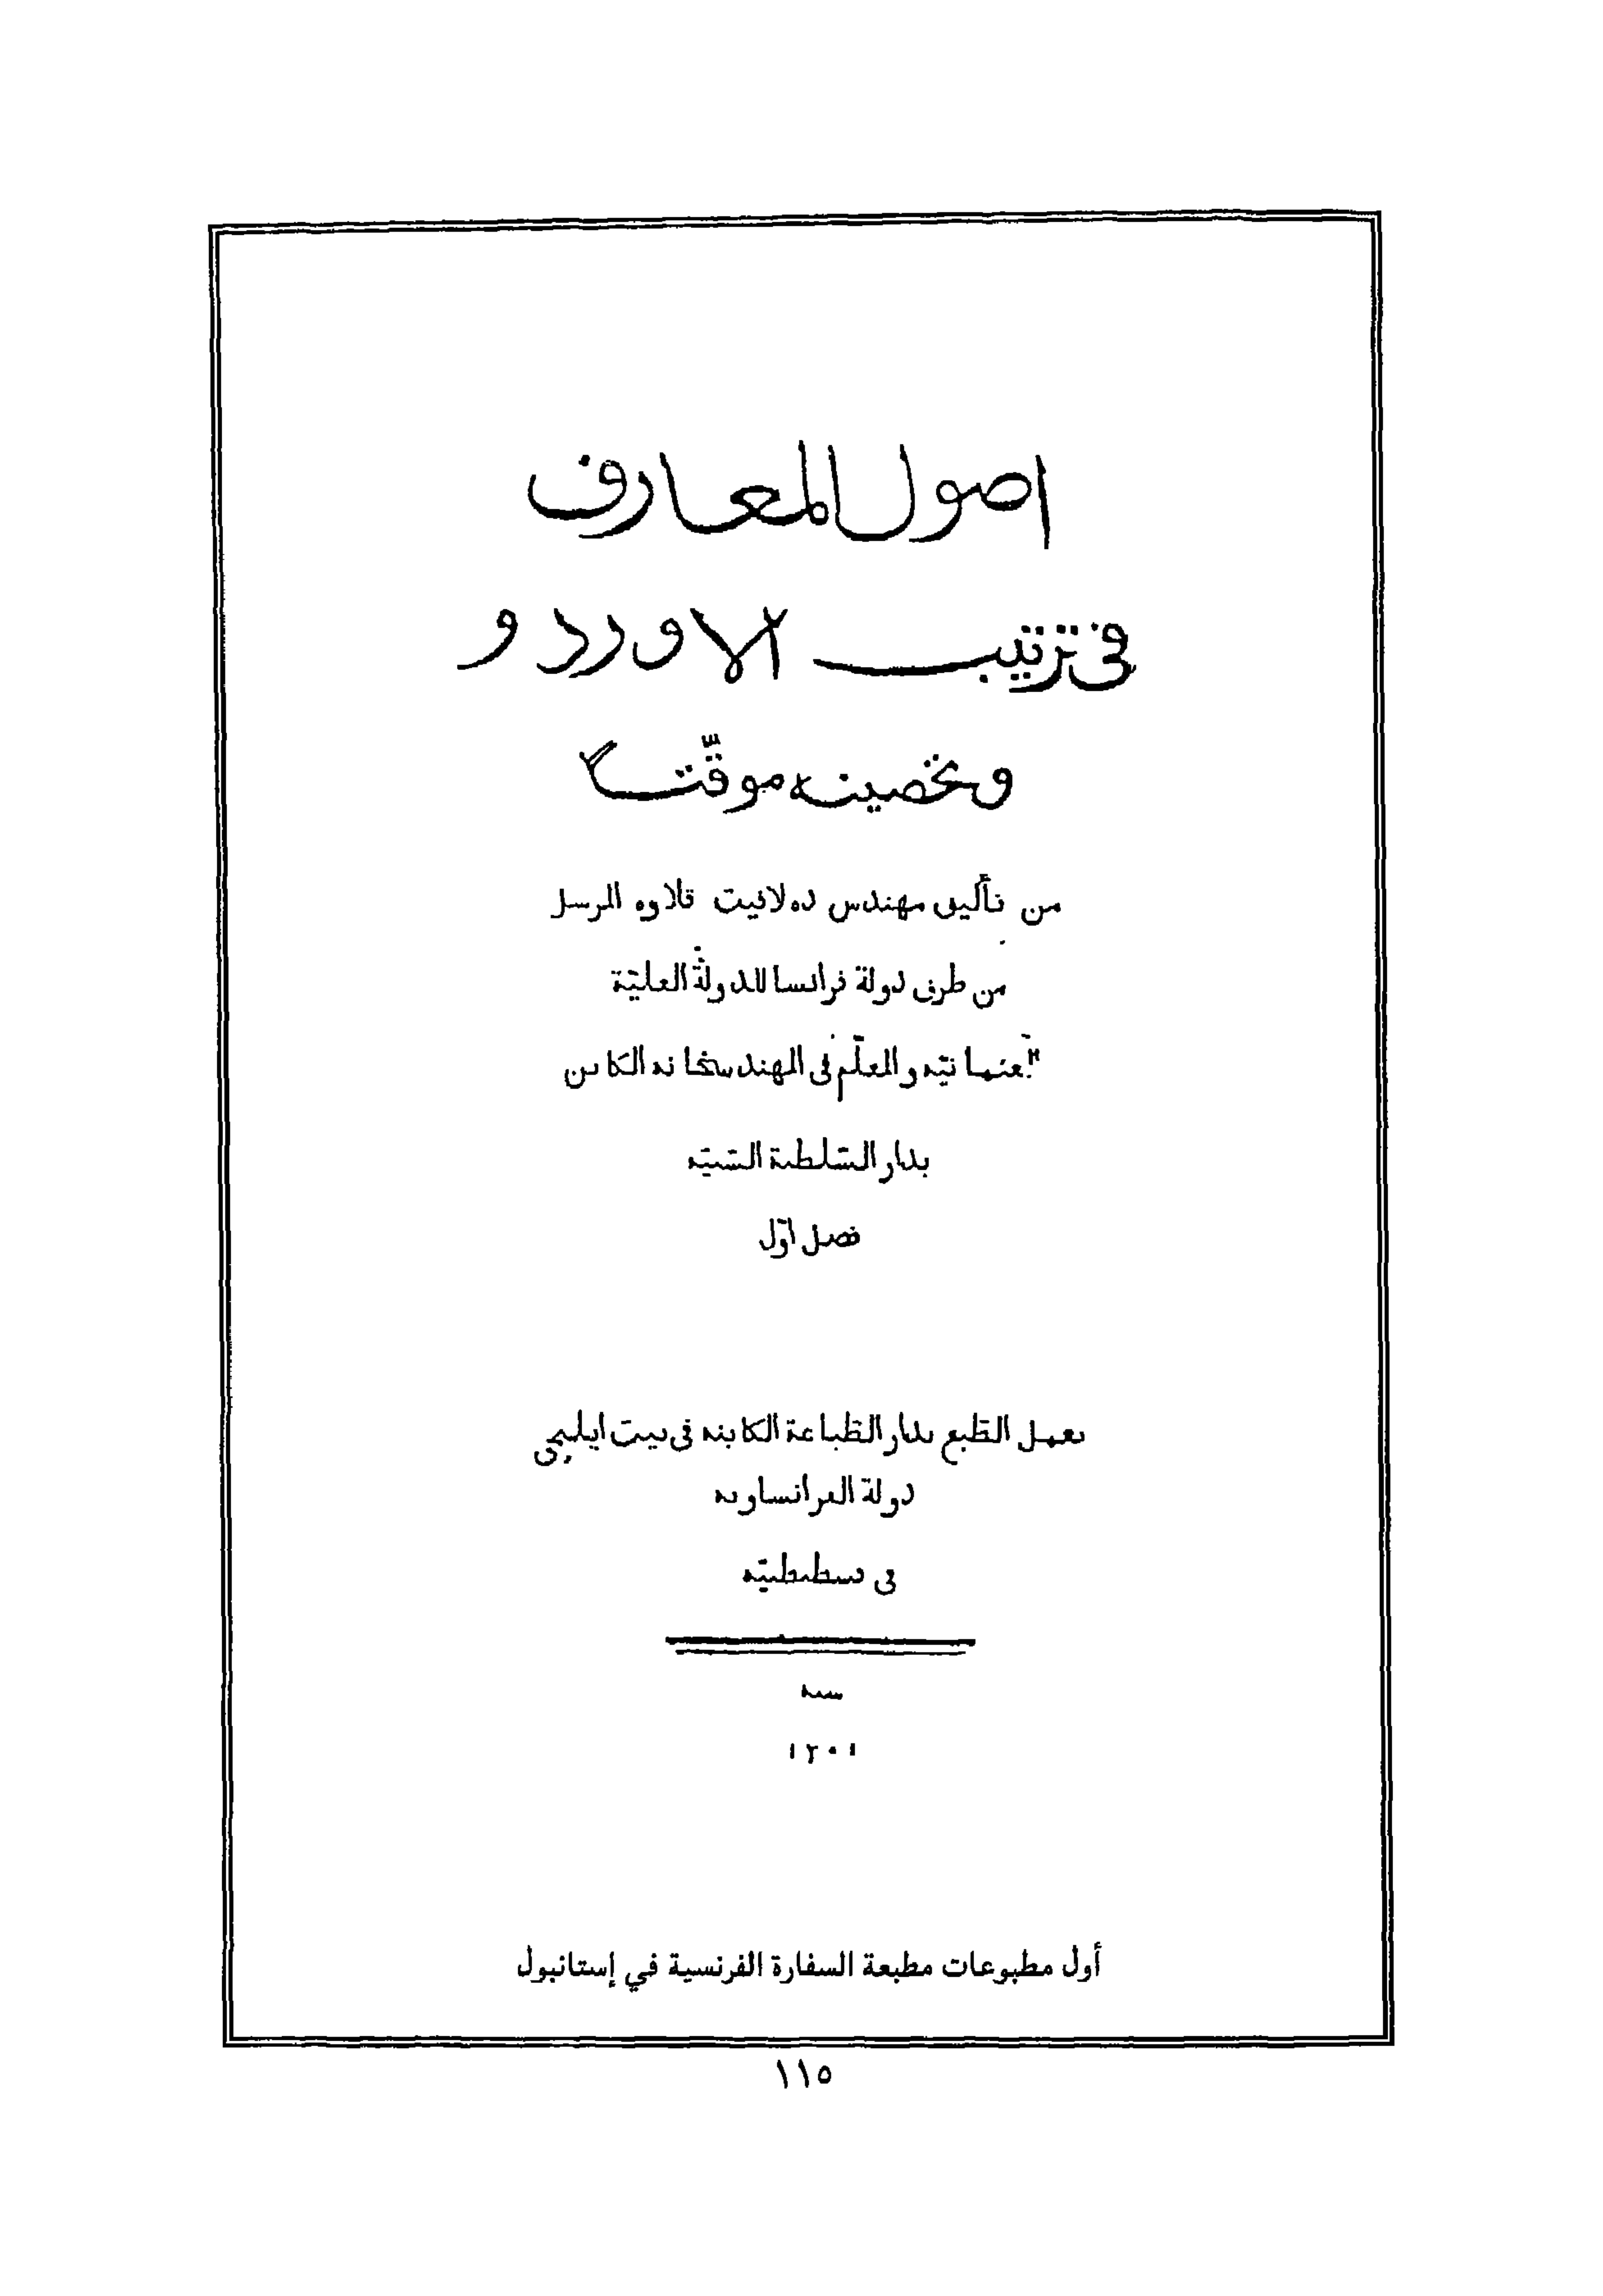 اصول المعارف
فی ترتیب الاوردو
وتحصینه موقّتاً
من تأليف مهندس ده لافيت قلاوه المرسل
من طرف دولة فرانسا للدولة العليّة
العثمانيّه والمعلّم فى المهندسخانه الكائن
بدار السّلطنة السّنيّه
فصل اوّل
بعمل الطّبع بدار الطّباعة الكاينه فى بيت ايلچى
دولة الفرانساويه
فى قسطنطنيّه
سنه
١٢٠١
أول مطبوعات مطبعة السفارة الفرنسية في إستانبول
١١٥